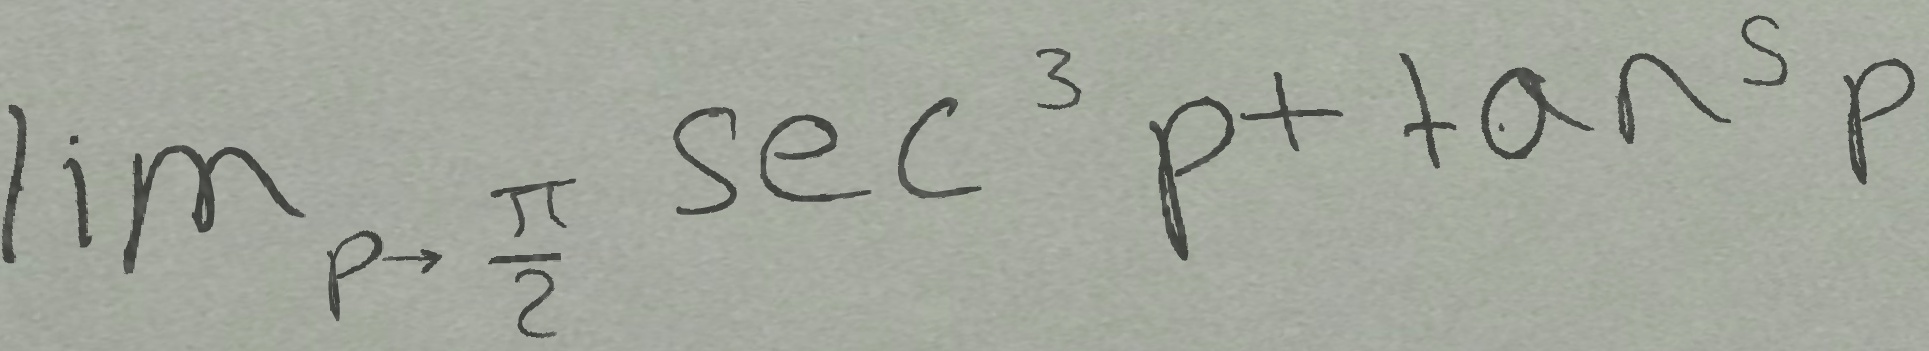 lim_{p→\frac{π}{2}} sec^3 p + tan^5 p